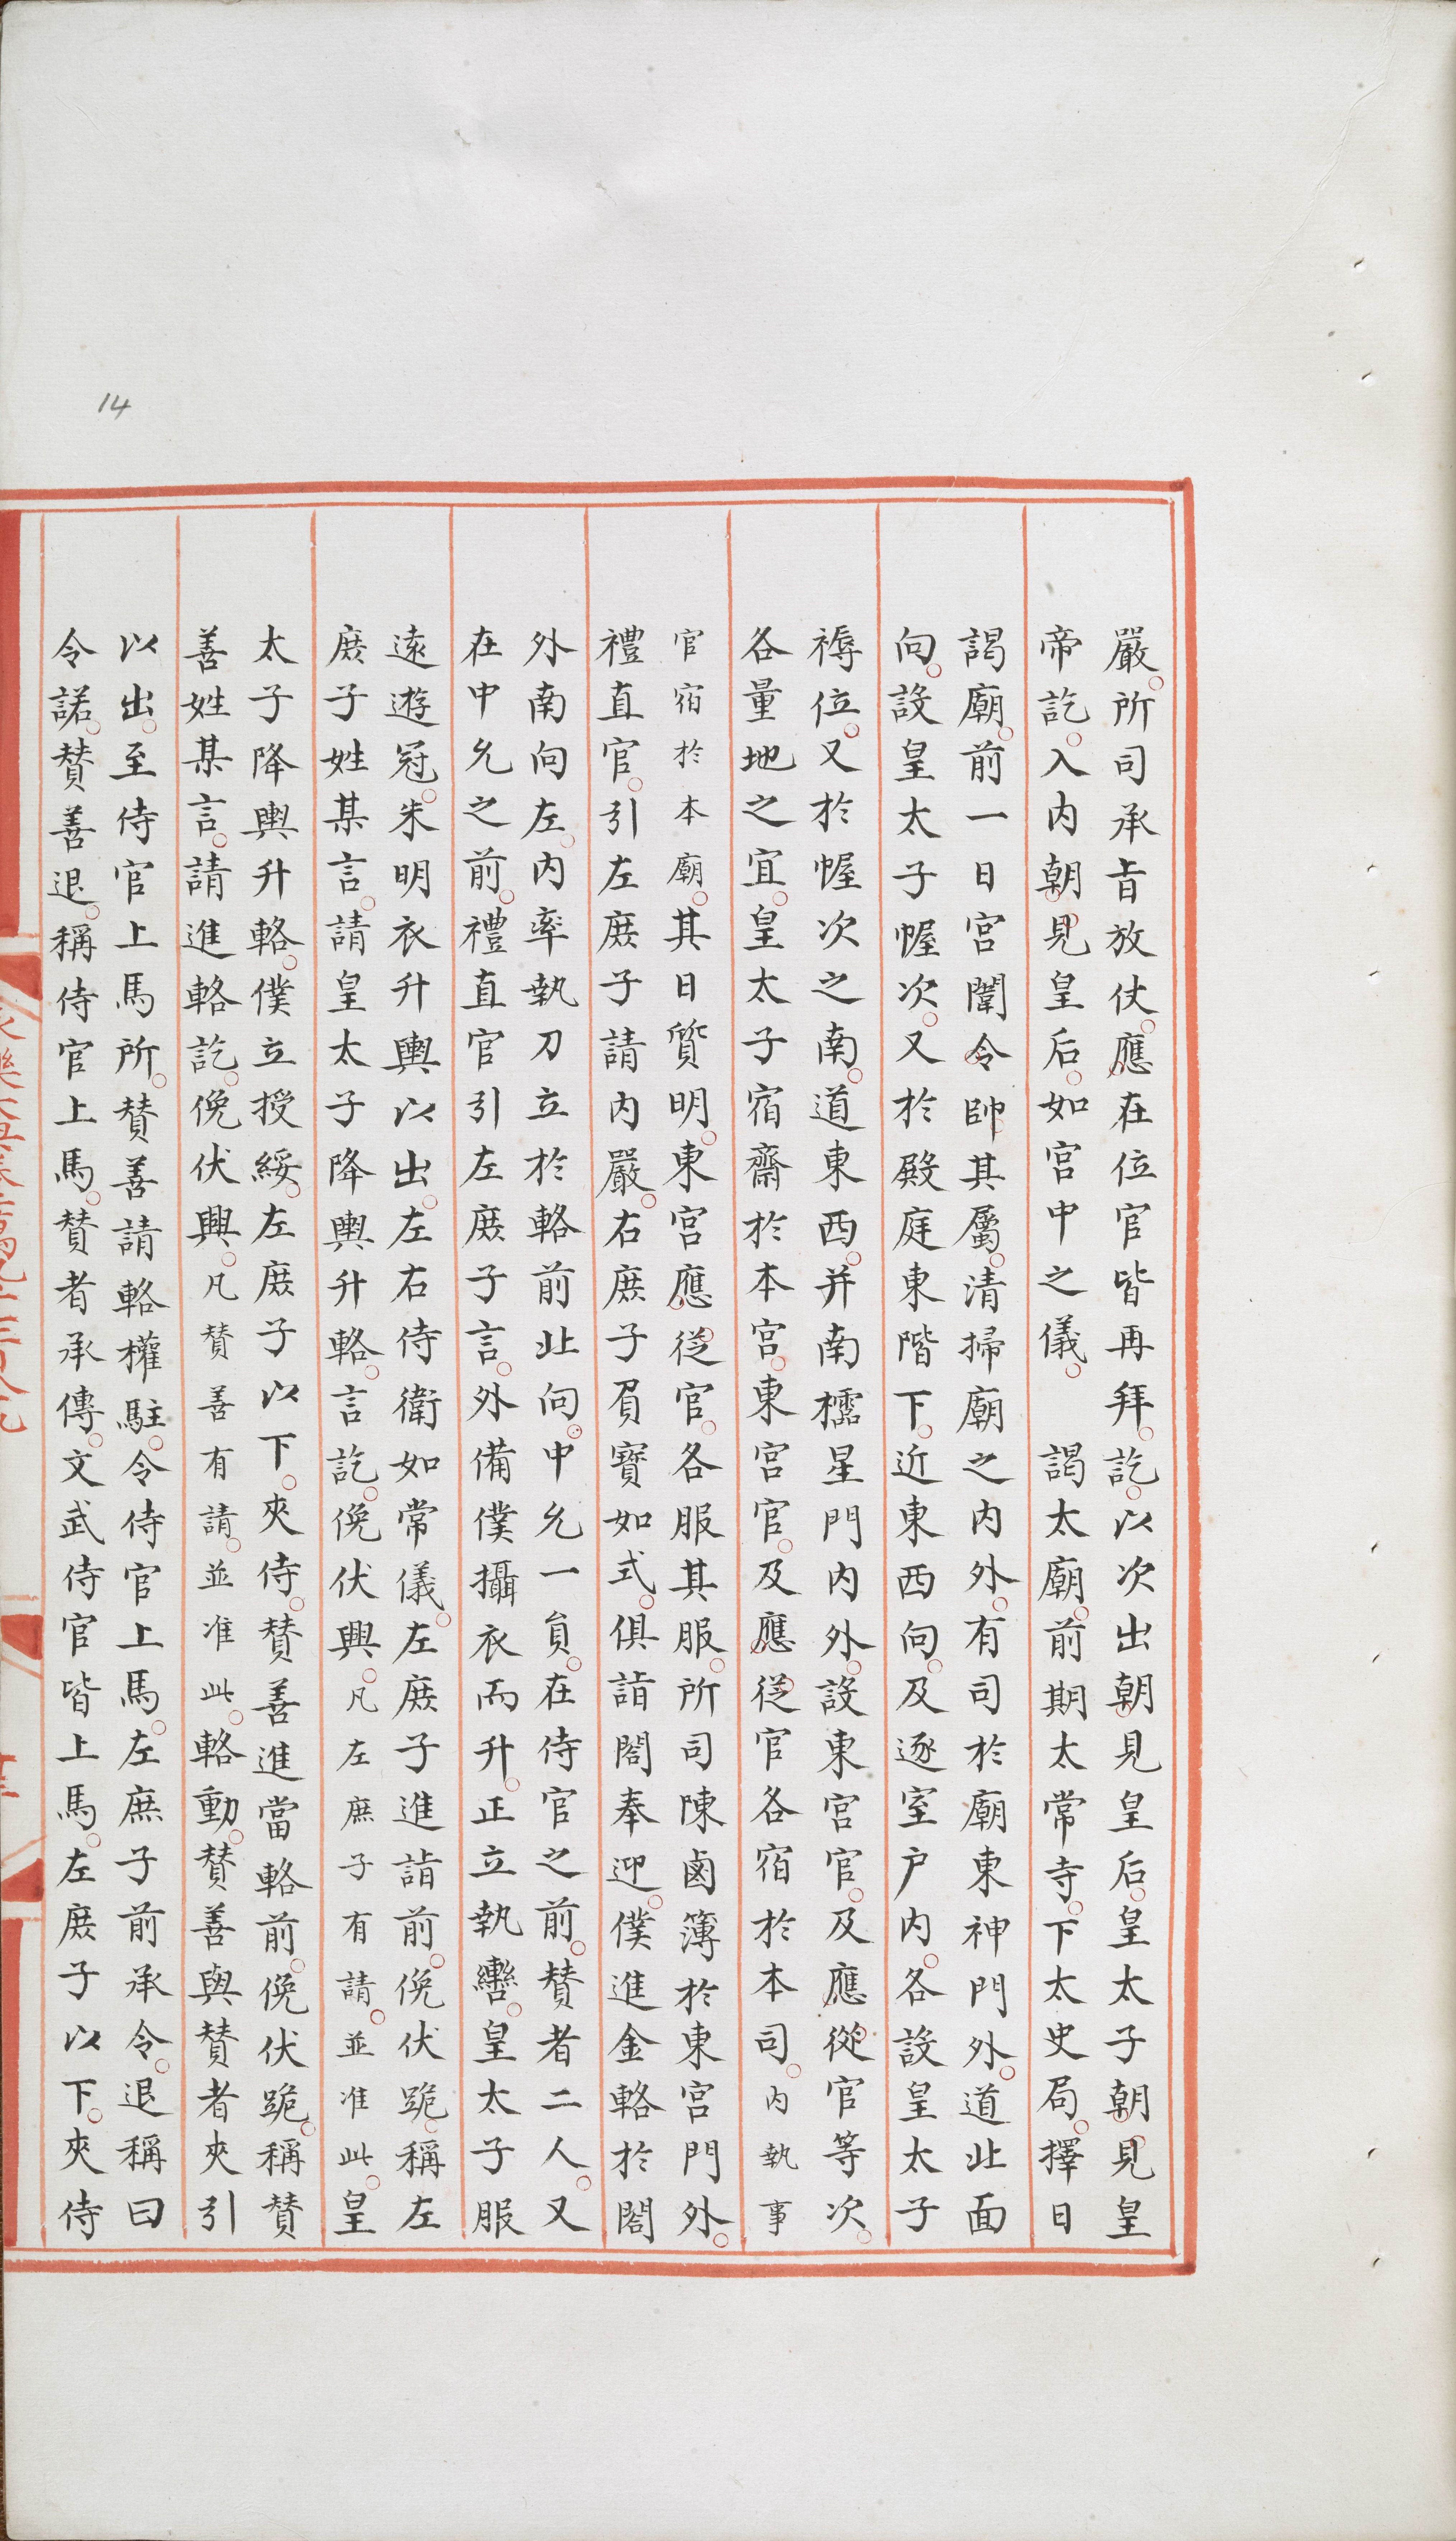 嚴。所司承旨放仗。應在位官皆再拜。訖。以次出朝見皇后。皇太子朝見皇
帝訖。入内朝見皇后。如宫中之儀。　謁太廟。前期太常寺。下太史局。擇日
謁廟。前一日宫闈令帥其屬。清掃廟之内外。有司於廟東神門外。道北面
向。設皇太子幄次。又於殿庭東階下。近東西向。及逐室户内。各設皇太子
褥位。又於幄次之南。道東西。并南櫺星門内外。設東宫官。及應從官等次。
各量地之宜。皇太子宿齋於本宫。東宫官。及應從官各宿於本司。内執事
官宿於本廟。其日質明。東宫應從官。各服其服。所司陳鹵簿於東宫門外。
禮直官。引左庶子請内嚴。右庶子負寳如式。俱詣閤奉迎。僕進金輅於閤
外南向左。内率執刀立於輅前北向。中允一員。在侍官之前。賛者二人。又
在中允之前。禮直官引左庶子言。外備僕攝衣而升。正立執轡。皇太子服
遠遊冠。朱明衣升輿以出。左右侍衛如常儀。左庶子進詣前。俛伏跪。稱左
庶子姓某言。請皇太子降輿升輅。言訖。俛伏興。凡左庶子有請。並准此。皇
太子降輿升輅。僕立授綏。左庶子以下。夾侍。賛善進當輅前。俛伏跪。稱賛
善姓某言。請進輅訖。俛伏興。凡賛善有請。並准此。輅動。賛善與賛者夾引
以出。至侍官上馬所。賛善請輅權駐。令侍官上馬。左庶子前承令。退稱曰
令諾。賛善退。稱侍官上馬。賛者承傳。文武侍官皆上馬。左庶子以下。夾侍
14